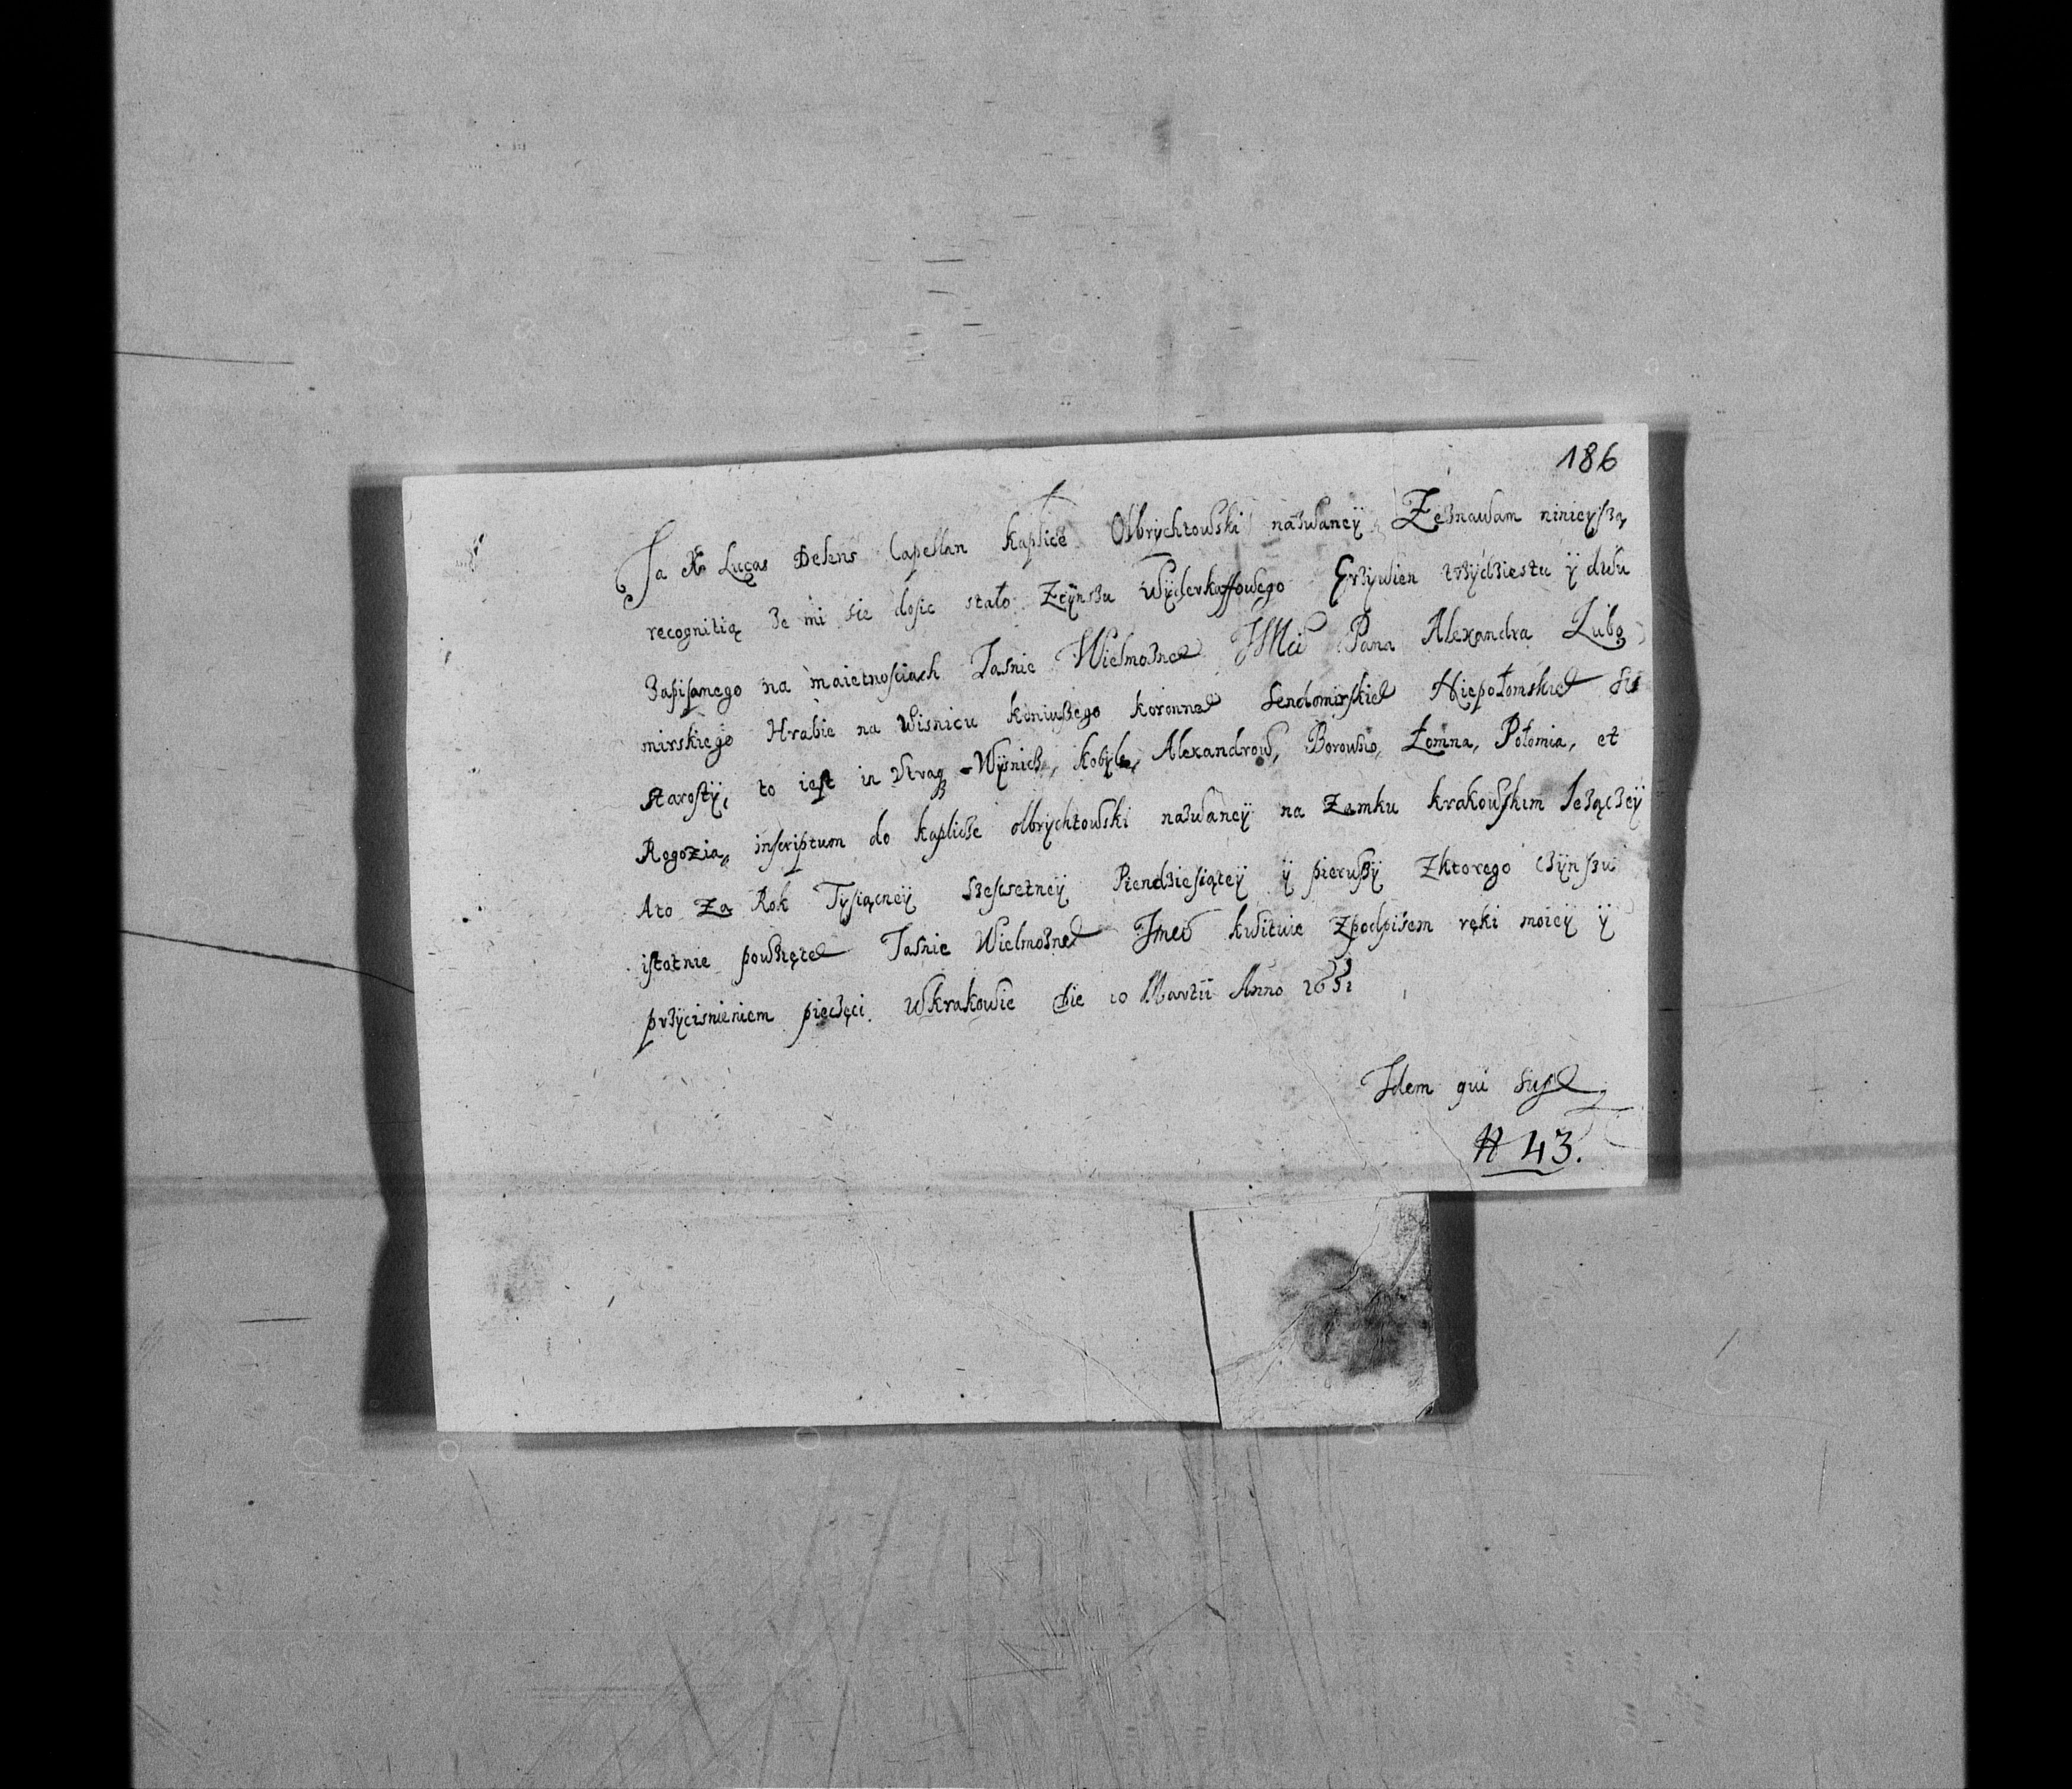 186
Ja X Lucas Delens Capellan kaplice Olbrychtowski nazwaney Zeznawam ninieyszą
recognitią że mi sie dosic stało Zcÿnszu Wÿderkaffowego Grzywien trzydziestu ÿ dwu
Zapisanego na maietnosciach Jasnie Wielmożne JMci Pana Alexandra Lubo
mirskiego Hrabie na Wisniczu koniuszego koronne Sendomirskie Niepołomskie
starostÿ, to iest in Utraq Wÿsnich, kobyle, Alexandrow, Borowno, Łomna, Połomia, et
Rogozia, inscriptum do kaplicze olbrychtowski nazwaneÿ na Zamku krakowskim leżączeÿ
Ato za Rok Tysiącneÿ szescsetneÿ Piendziesiąteÿ ÿ pierwszÿ Zktorego czÿnszu
istotnie powzięte Jasnie Wielmożne Jmci kwituie Zpodpisem ręki moieÿ ÿ
przycisnieniem pieczęci. Wkrakowie Die 10 Martii Anno 1651
Idem qui supe
N 43.